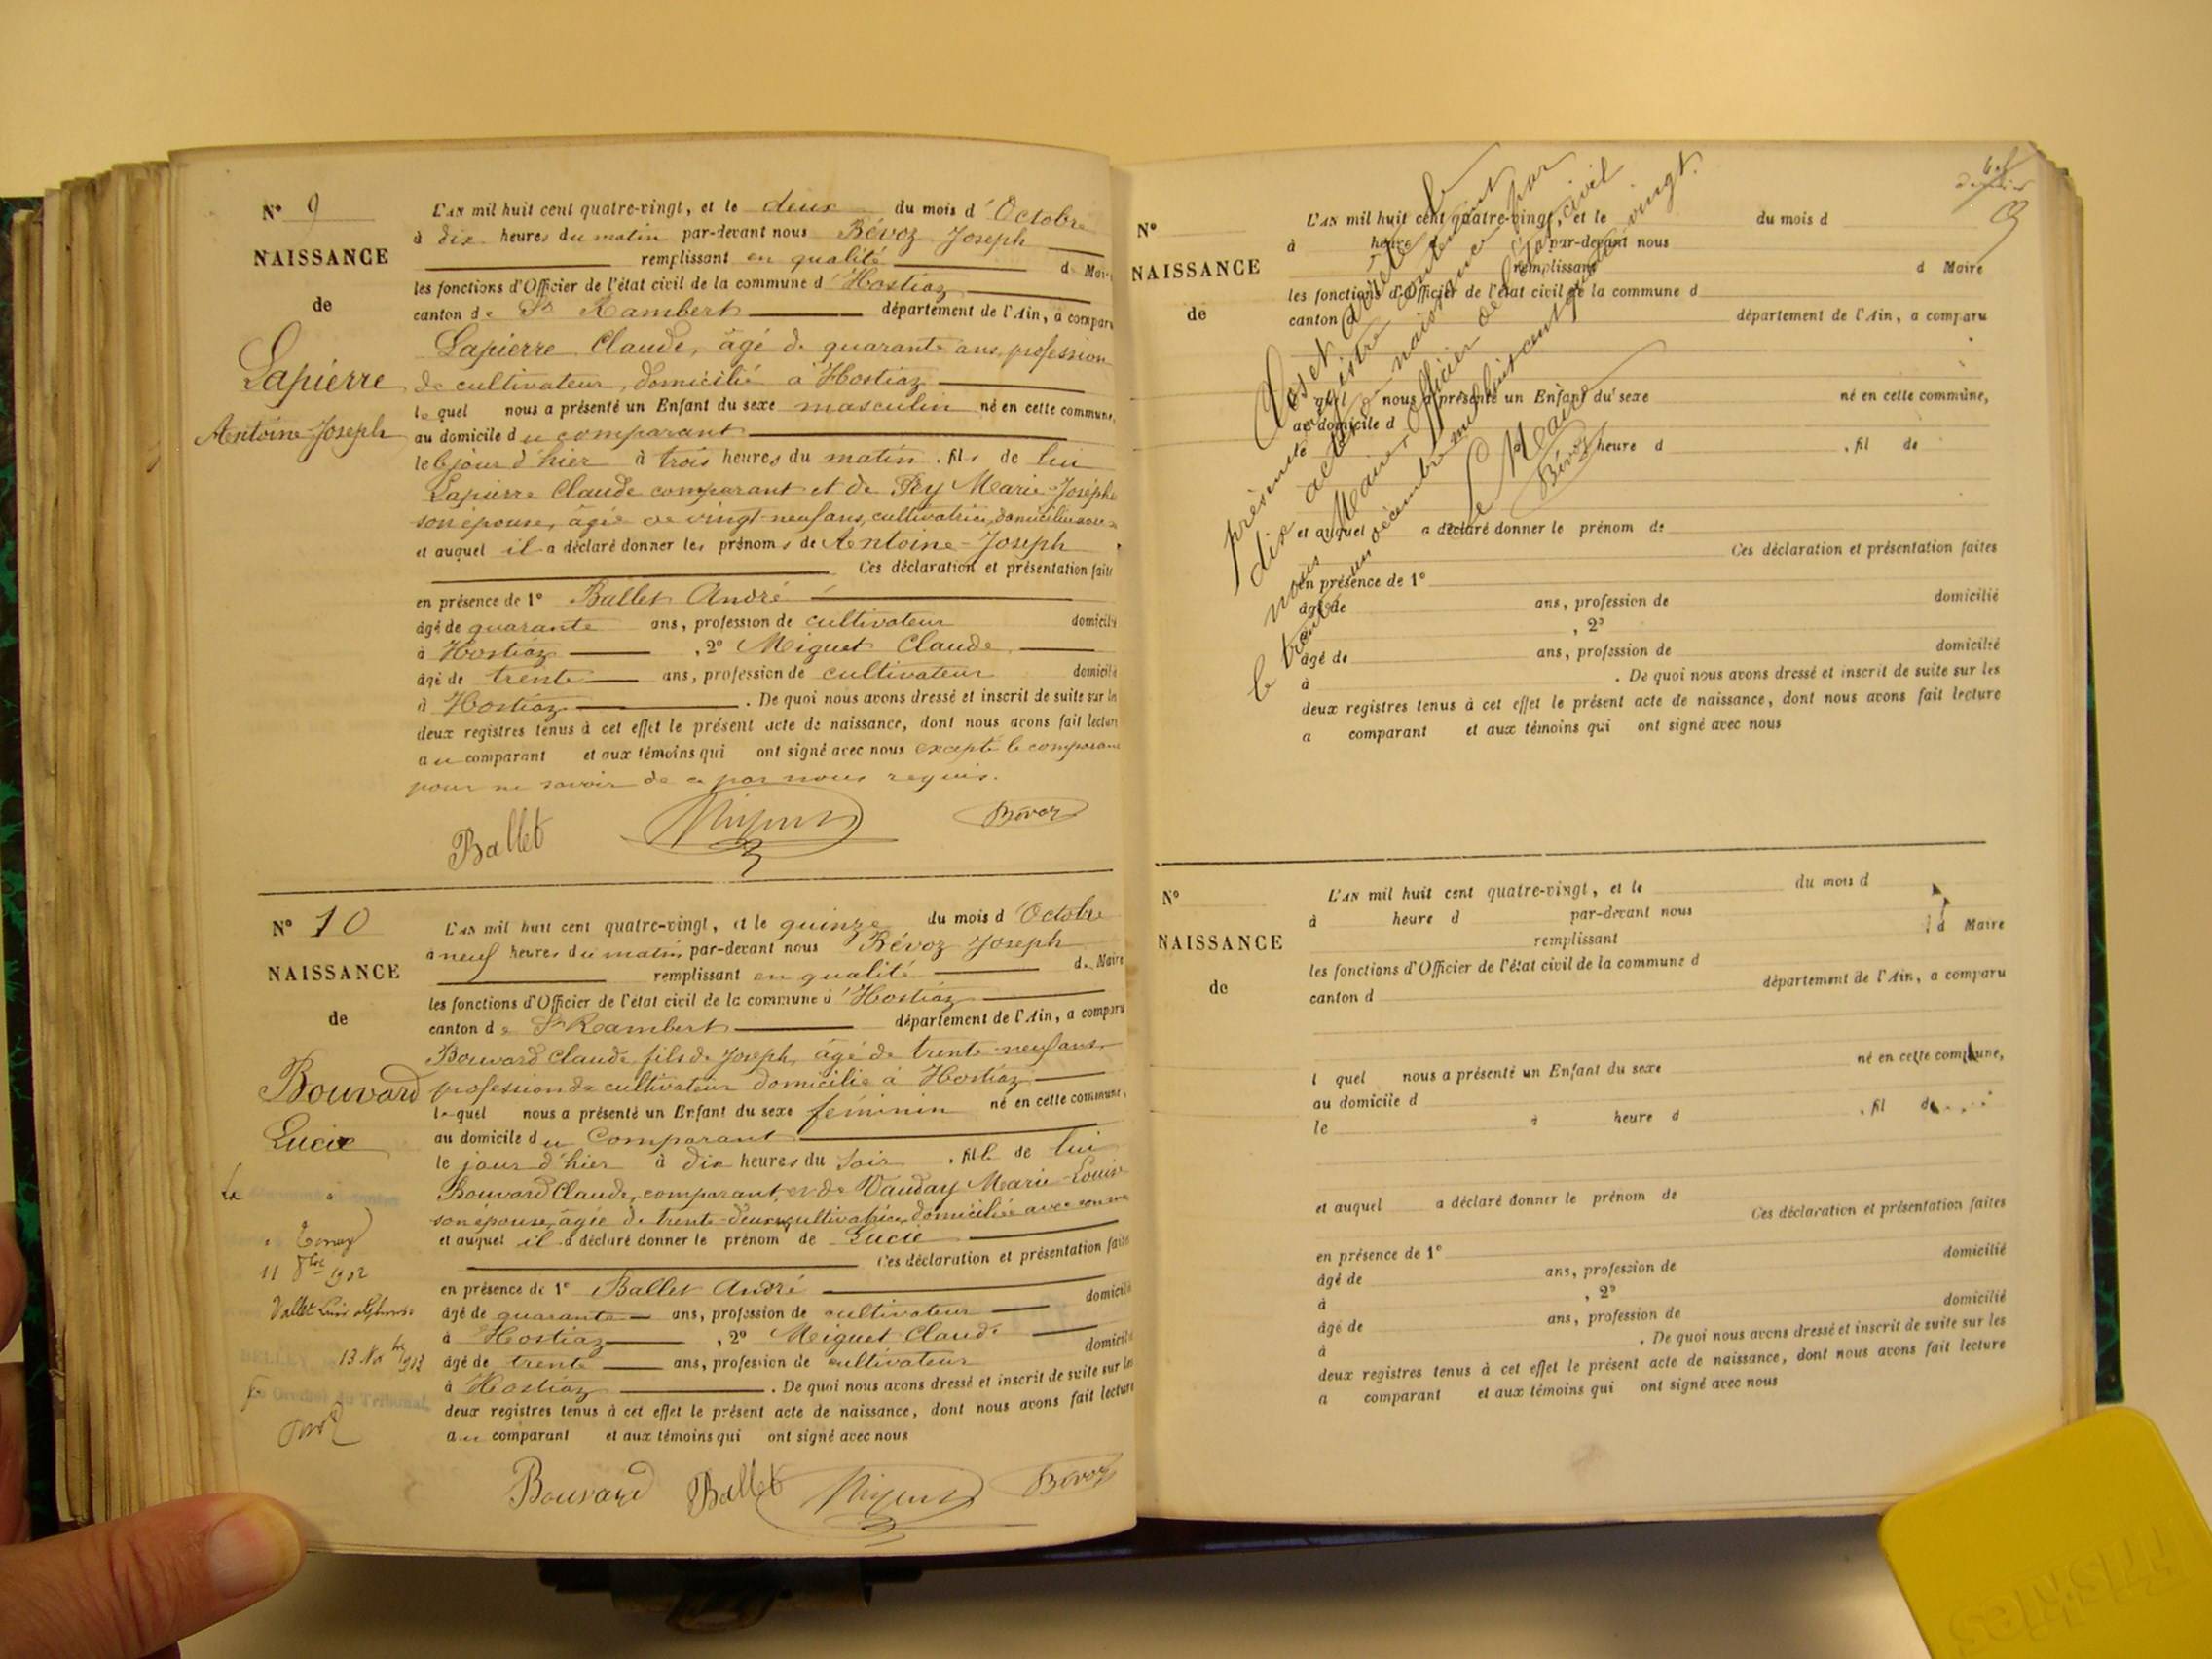 N° 9
NAISSANCE
de
Lapierre
Antoine-Joseph
L'AN mil huit cent quatre-vingt, et le deux du mois d'Octobre
à dix heures du matin par-devant nous Bévoz Joseph
remplissant en qualité de Mair
les fonctions d'Officier de l'état civil de la commune d'Hostiaz
canton de St Rambert département de l'Ain, a comparu
Lapierre Claude, âgé de quarante ans, profession
de cultivateur, domicilié à Hostiaz
lequel nous a présenté un Enfant du sexe masculin né en cette commune,
au domicile du comparant
le jour d'hier à trois heures du matin, fils de lui
Lapierre Claude comparant et de Fey Marie-Josephe
son épouse, âgée de vingt-neuf ans, cultivatrice, domiciliée
et auquel il a déclaré donner les prénoms de Antoine-Joseph
Ces déclaration et présentation faites
en présence de 1° Ballet André
âgé de quarante ans, profession de cultivateur domicilié
à Hostiaz, 2° Miguet Claude
âgé de trente ans, profession de cultivateur domicilié
à Hostiaz. De quoi nous avons dressé et inscrit de suite sur les
deux registres tenus à cet effet le présent acte de naissance, dont nous avons fait lecture
au comparant et aux témoins qui ont signé avec nous excepté le comparant
pour ne savoir de ce par nous requis.
Ballet Miguet Bévoz
N° 10
NAISSANCE
de
Bouvard
Lucie
L'AN mil huit cent quatre-vingt, et le quinze du mois d'Octobre
à neuf heures du matin par-devant nous Bévoz Joseph
remplissant en qualité de Maire
les fonctions d'Officier de l'état civil de la commune d'Hostiaz
canton de St Rambert département de l'Ain, a comparu
Bouvard Claude fils de Joseph, âgé de trente-neuf ans,
profession de cultivateur domicilié à Hostiaz
lequel nous a présenté un Enfant du sexe féminin né en cette commune,
au domicile du Comparant
le jour d'hier à dix heures du soir, fille de lui
Bouvard Claude, comparant, et de Vauday Marie-Louise
son épouse, âgée de trente-deux, cultivatrice, domiciliée avec son
et auquel il a déclaré donner le prénom de Lucie
Ces déclaration et présentation faites
en présence de 1° Ballet André
âgé de quarante ans, profession de cultivateur domicilié
à Hostiaz, 2° Miguet Claude
âgé de trente ans, profession de cultivateur domicilié
à Hostiaz. De quoi nous avons dressé et inscrit de suite sur les
deux registres tenus à cet effet le présent acte de naissance, dont nous avons fait lecture
au comparant et aux témoins qui ont signé avec nous
Bouvard Ballet Miguet Bévoz
La
11 8bre 1902
13 Nov bre 1913
BELLEY
Greffier du Tribunal
N°
NAISSANCE
de
L'AN mil huit cent quatre-vingt, et le du mois d
à heure d par-devant nous
remplissant d Maire
les fonctions d'Officier de l'état civil de la commune d
canton d département de l'Ain, a comparu
l quel nous a présenté un Enfant du sexe né en cette commune,
au domicile d
le à heure d , fil de
et auquel a déclaré donner le prénom de
Ces déclaration et présentation faites
en présence de 1°
âgé de ans, profession de domicilié
à , 2°
âgé de ans, profession de domicilié
à . De quoi nous avons dressé et inscrit de suite sur les
deux registres tenus à cet effet le présent acte de naissance, dont nous avons fait lecture
a comparant et aux témoins qui ont signé avec nous
le
présent registre contenant
dix actes de naissance par
nous Maire, Officier de l'état civil
le trente un décembre mil huit cent quatre vingt.
Le Maire
Bévoz
N°
NAISSANCE
de
L'AN mil huit cent quatre-vingt, et le du mois d
à heure d par-devant nous
remplissant d Maire
les fonctions d'Officier de l'état civil de la commune d
canton d département de l'Ain, a comparu
l quel nous a présenté un Enfant du sexe né en cette commune,
au domicile d
le à heure d , fil de
et auquel a déclaré donner le prénom de
Ces déclaration et présentation faites
en présence de 1°
âgé de ans, profession de domicilié
à , 2°
âgé de ans, profession de domicilié
à . De quoi nous avons dressé et inscrit de suite sur les
deux registres tenus à cet effet le présent acte de naissance, dont nous avons fait lecture
a comparant et aux témoins qui ont signé avec nous
Friskies